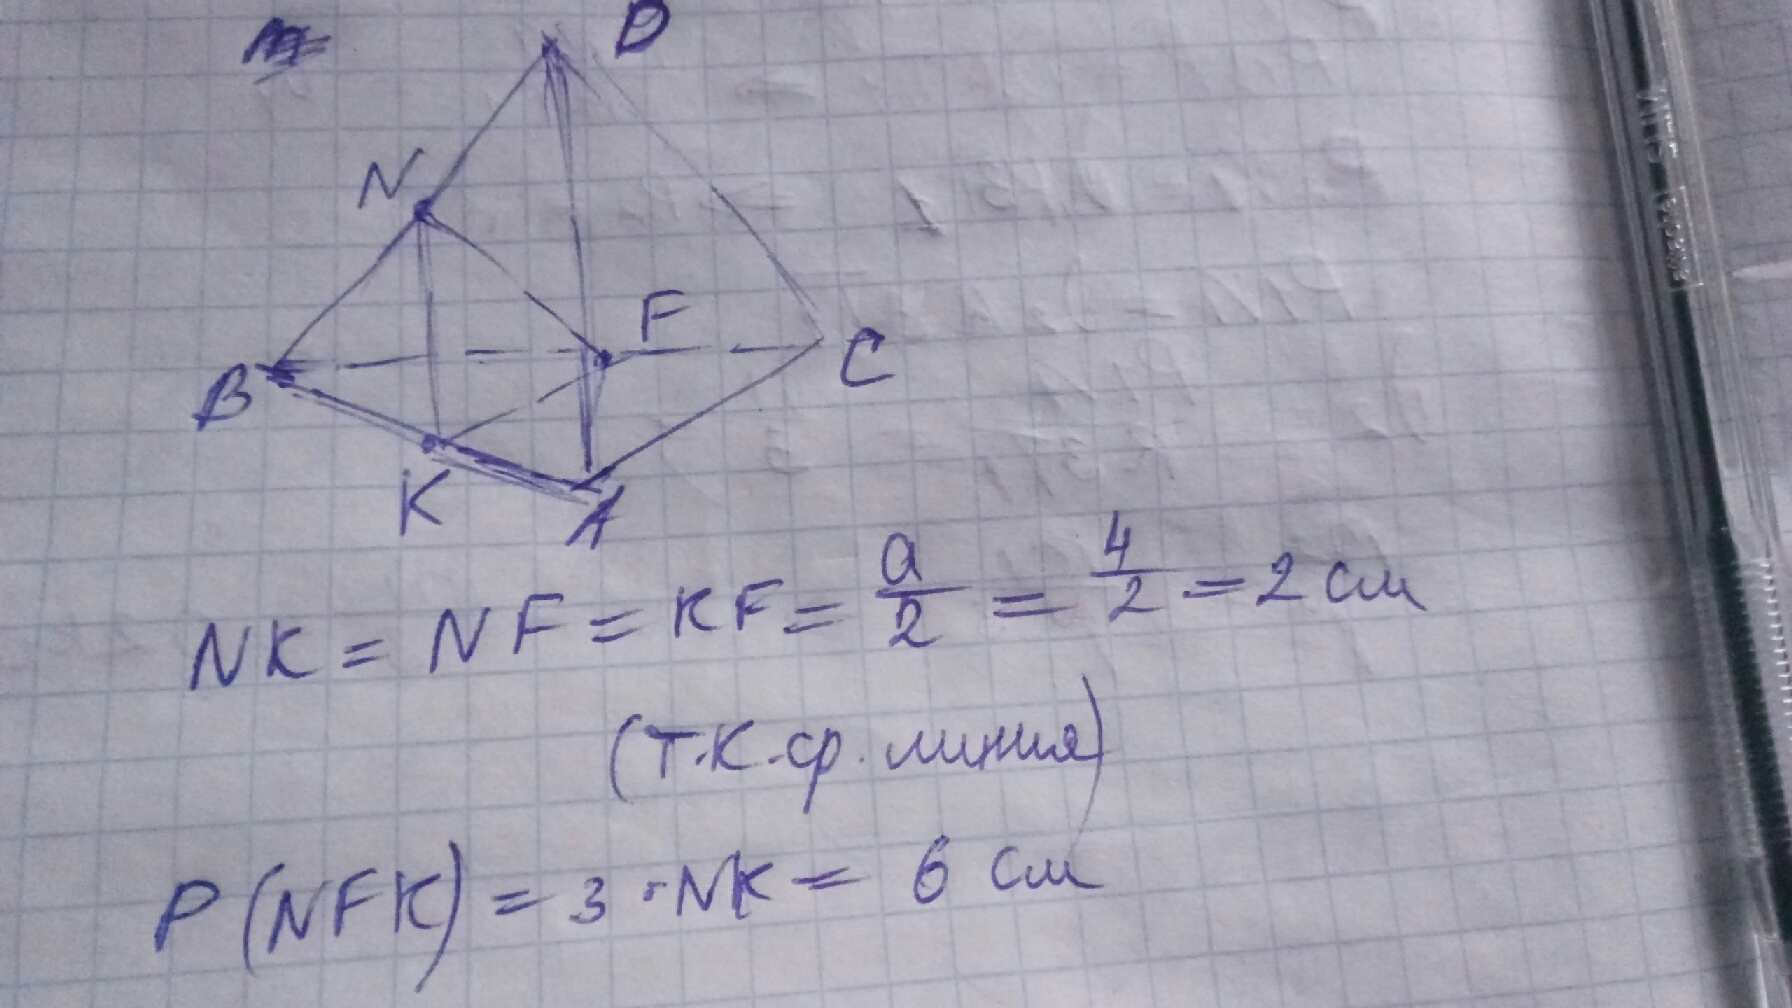 D
N
F
B
C
K
A
NK = NF = KF = a/2 = 4/2 = 2 см
(т.к. ср. линия)
P(NFK) = 3 · NK = 6 см